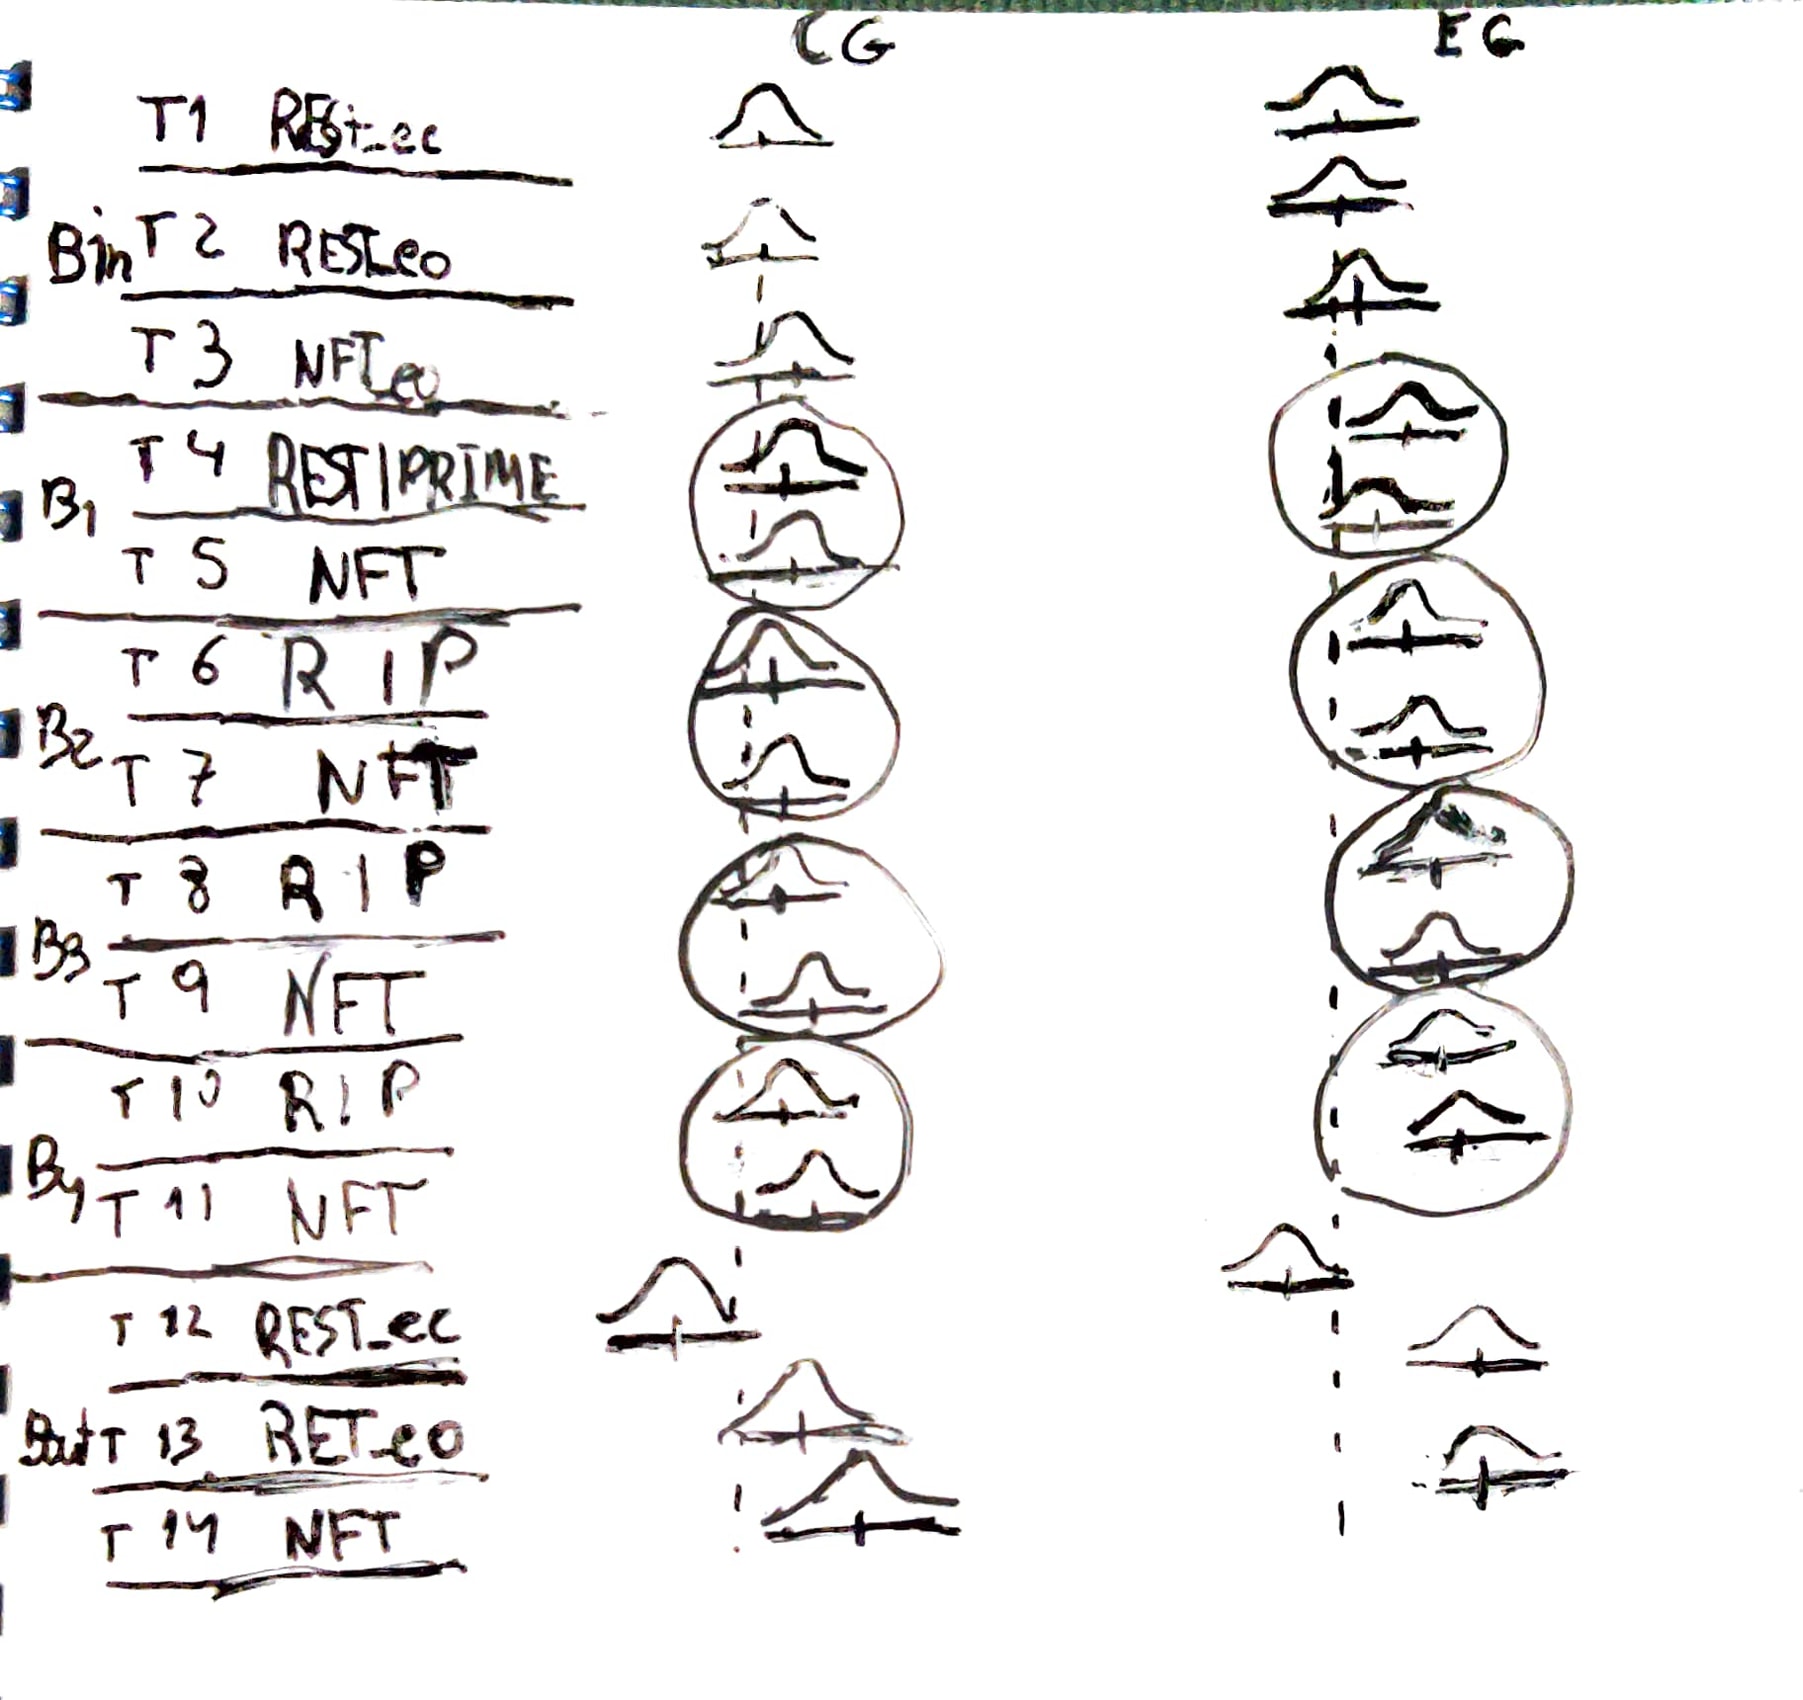 CG EG
T1 REst_ec
Bin T2 REST_eo
T3 NFT_eo
T4 REST|PRIME
B1
T5 NFT
T6 R|P
B2
T7 NFT
T8 R|P
B3
T9 NFT
T10 R|P
B4
T11 NFT
T12 REST_ec
Bout T13 RET_eo
T14 NFT